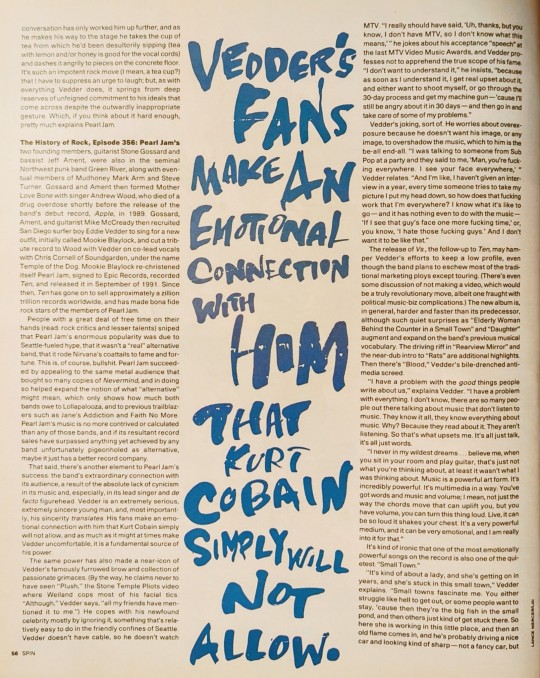 conversation has only worked him up further, and as
he makes his way to the stage he takes the cup of
tea from which he'd been desultorily sipping (tea
with lemon and/or honey is good for the vocal cords)
and dashes it angrily to pieces on the concrete floor.
It's such an impotent rock move (I mean, a tea cup?)
that I have to suppress an urge to laugh; but, as with
everything Vedder does, it springs from deep
reserves of unfeigned commitment to his ideals that
come across despite the outwardly inappropriate
gesture. Which, if you think about it hard enough,
pretty much explains Pearl Jam.
The History of Rock, Episode 356: Pearl Jam's
two founding members, guitarist Stone Gossard and
bassist Jeff Ament, were also in the seminal
Northwest punk band Green River, along with even-
tual members of Mudhoney Mark Arm and Steve
Turner. Gossard and Ament then formed Mother
Love Bone with singer Andrew Wood, who died of a
drug overdose shortly before the release of the
band's debut record, Apple, in 1989. Gossard,
Ament, and guitarist Mike McCready then recruited
San Diego surfer boy Eddie Vedder to sing for a new
outfit, initially called Mookie Blaylock, and cut a trib-
ute record to Wood with Vedder on co-lead vocals
with Chris Cornell of Soundgarden, under the name
Temple of the Dog. Mookie Blaylock re-christened
itself Pearl Jam, signed to Epic Records, recorded
Ten, and released it in September of 1991. Since
then, Ten has gone on to sell approximately a zillion
trillion records worldwide, and has made bona fide
rock stars of the members of Pearl Jam.
People with a great deal of free time on their
hands (read: rock critics and lesser talents) sniped
that Pearl Jam's enormous popularity was due to
Seattle-fueled hype, that it wasn't a "real" alternative
band, that it rode Nirvana's coattails to fame and for-
tune. This is, of course, bullshit. Pearl Jam succeed-
ed by appealing to the same metal audience that
bought so many copies of Nevermind, and in doing
so helped expand the notion of what "alternative"
might mean, which only shows how much both
bands owe to Lollapalooza, and to previous trailblaz-
ers such as Jane's Addiction and Faith No More.
Pearl Jam's music is no more contrived or calculated
than any of those bands, and if its resultant record
sales have surpassed anything yet achieved by any
band unfortunately pigeonholed as alternative,
maybe it just has a better record company.
That said, there's another element to Pearl Jam's
success: the band's extraordinary connection with
its audience, a result of the absolute lack of cynicism
in its music and, especially, in its lead singer and de
facto figurehead. Vedder is an extremely serious,
extremely sincere young man, and, most important-
ly, his sincerity translates. His fans make an emo-
tional connection with him that Kurt Cobain simply
will not allow, and as much as it might at times make
Vedder uncomfortable, it is a fundamental source of
his power.
The same power has also made a near-icon of
Vedder's famously furrowed brow and collection of
passionate grimaces. (By the way, he claims never to
have seen "Plush," the Stone Temple Pilots video
where Weiland cops most of his facial tics.
"Although," Vedder says, "all my friends have men-
tioned it to me.") He copes with his newfound
celebrity mostly by ignoring it, something that's rela-
tively easy to do in the friendly confines of Seattle.
Vedder doesn't have cable, so he doesn't watch
56 SPIN
VEDDER'S
FANS
MAKE AN
EMOTIONAL
CONNECTION
WITH
HIM
THAT
KURT
COBAIN
SIMPLY WILL
NOT
ALLOW.
MTV. "I really should have said, 'Uh, thanks, but you
know, I don't have MTV, so I don't know what this
means,'" he jokes about his acceptance "speech" at
the last MTV Video Music Awards, and Vedder pro-
fesses not to apprehend the true scope of his fame.
"I don't want to understand it," he insists, "because
as soon as I understand it, I get real upset about it,
and either want to shoot myself, or go through the
30-day process and get my machine gun—'cause I'll
still be angry about it in 30 days—and then go in and
take care of some of my problems."
Vedder's joking, sort of. He worries about overex-
posure because he doesn't want his image, or any
image, to overshadow the music, which to him is the
be-all end-all. "I was talking to someone from Sub
Pop at a party and they said to me, 'Man, you're fuck-
ing everywhere. I see your face everywhere,'"
Vedder relates. "And I'm like, I haven't given an inter-
view in a year, every time someone tries to take my
picture I put my head down, so how does that fucking
work that I'm everywhere? I know what it's like to
go—and it has nothing even to do with the music—
'If I see that guy's face one more fucking time,' or,
you know, 'I hate those fucking guys.' And I don't
want it to be like that."
The release of Vs., the follow-up to Ten, may ham-
per Vedder's efforts to keep a low profile, even
though the band plans to eschew most of the tradi-
tional marketing ploys except touring. (There's even
some discussion of not making a video, which would
be a truly revolutionary move, albeit one fraught with
political music-biz complications.) The new album is,
in general, harder and faster than its predecessor,
although such quiet surprises as "Elderly Woman
Behind the Counter in a Small Town" and "Daughter"
augment and expand on the band's previous musical
vocabulary. The driving riff in "Rearview Mirror" and
the near-dub intro to "Rats" are additional highlights.
Then there's "Blood," Vedder's bile-drenched anti-
media screed.
"I have a problem with the good things people
write about us," explains Vedder. "I have a problem
with everything. I don't know, there are so many peo-
ple out there talking about music that don't listen to
music. They know it all, they know everything about
music. Why? Because they read about it. They aren't
listening. So that's what upsets me. It's all just talk,
it's all just words.
"I never in my wildest dreams... believe me, when
you sit in your room and play guitar, that's just not
what you're thinking about, at least it wasn't what I
was thinking about. Music is a powerful art form. It's
incredibly powerful. It's multimedia in a way. You've
got words and music and volume; I mean, not just the
way the chords move that can uplift you, but you
have volume, you can turn this thing loud. Live, it can
be so loud it shakes your chest. It's a very powerful
medium, and it can be very emotional, and I am really
into it for that."
It's kind of ironic that one of the most emotionally
powerful songs on the record is also one of the qui-
etest. "Small Town."
"It's kind of about a lady, and she's getting on in
years, and she's stuck in this small town," Vedder
explains. "Small towns fascinate me. You either
struggle like hell to get out, or some people want to
stay, 'cause then they're the big fish in the small
pond, and then others just kind of get stuck there. So
here she is working in this little place, and then an
old flame comes in, and he's probably driving a nice
car and looking kind of sharp—not a fancy car, but
LANCE MERCER